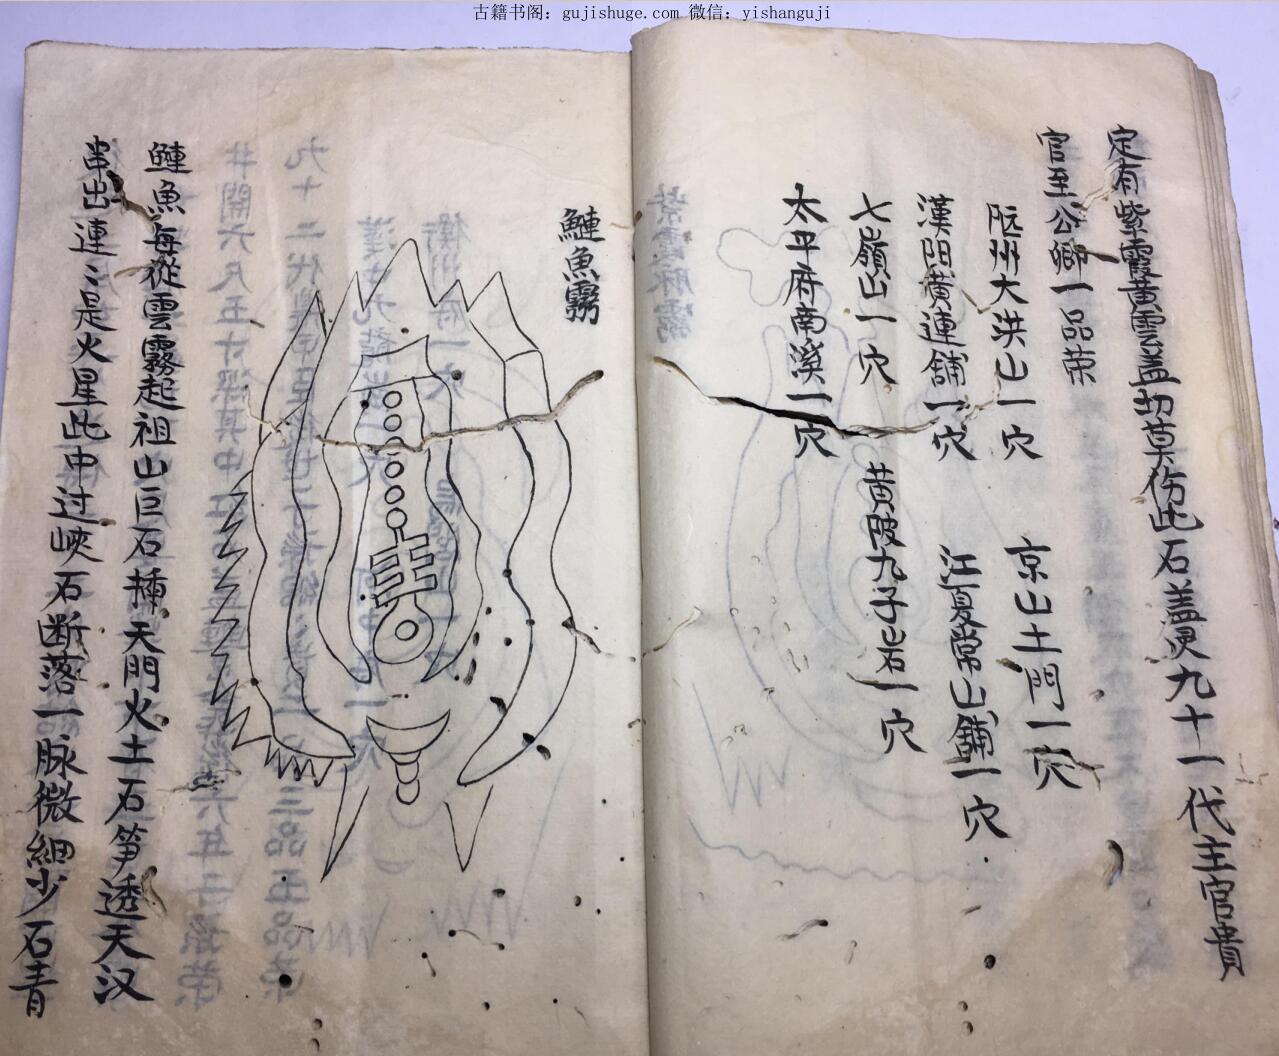 古籍书阁：gujishuge.com 微信：yishanguji
定有紫霞黄雲盖切莫伤此石盖灵九十一代主官貴
官至公卿一品荣
阮州大洪山一穴 京山土門一穴
漢阳黄連舖一穴 江夏常山舖一穴
七嶺山一穴 黄陂九子岩一穴
太平府南溪一穴
鰱魚霧
鰱魚每從雲霧起祖山巨石揷天門火土石笋透天汉
串出連〻是火星此中过峽石断落一脉微細少石青